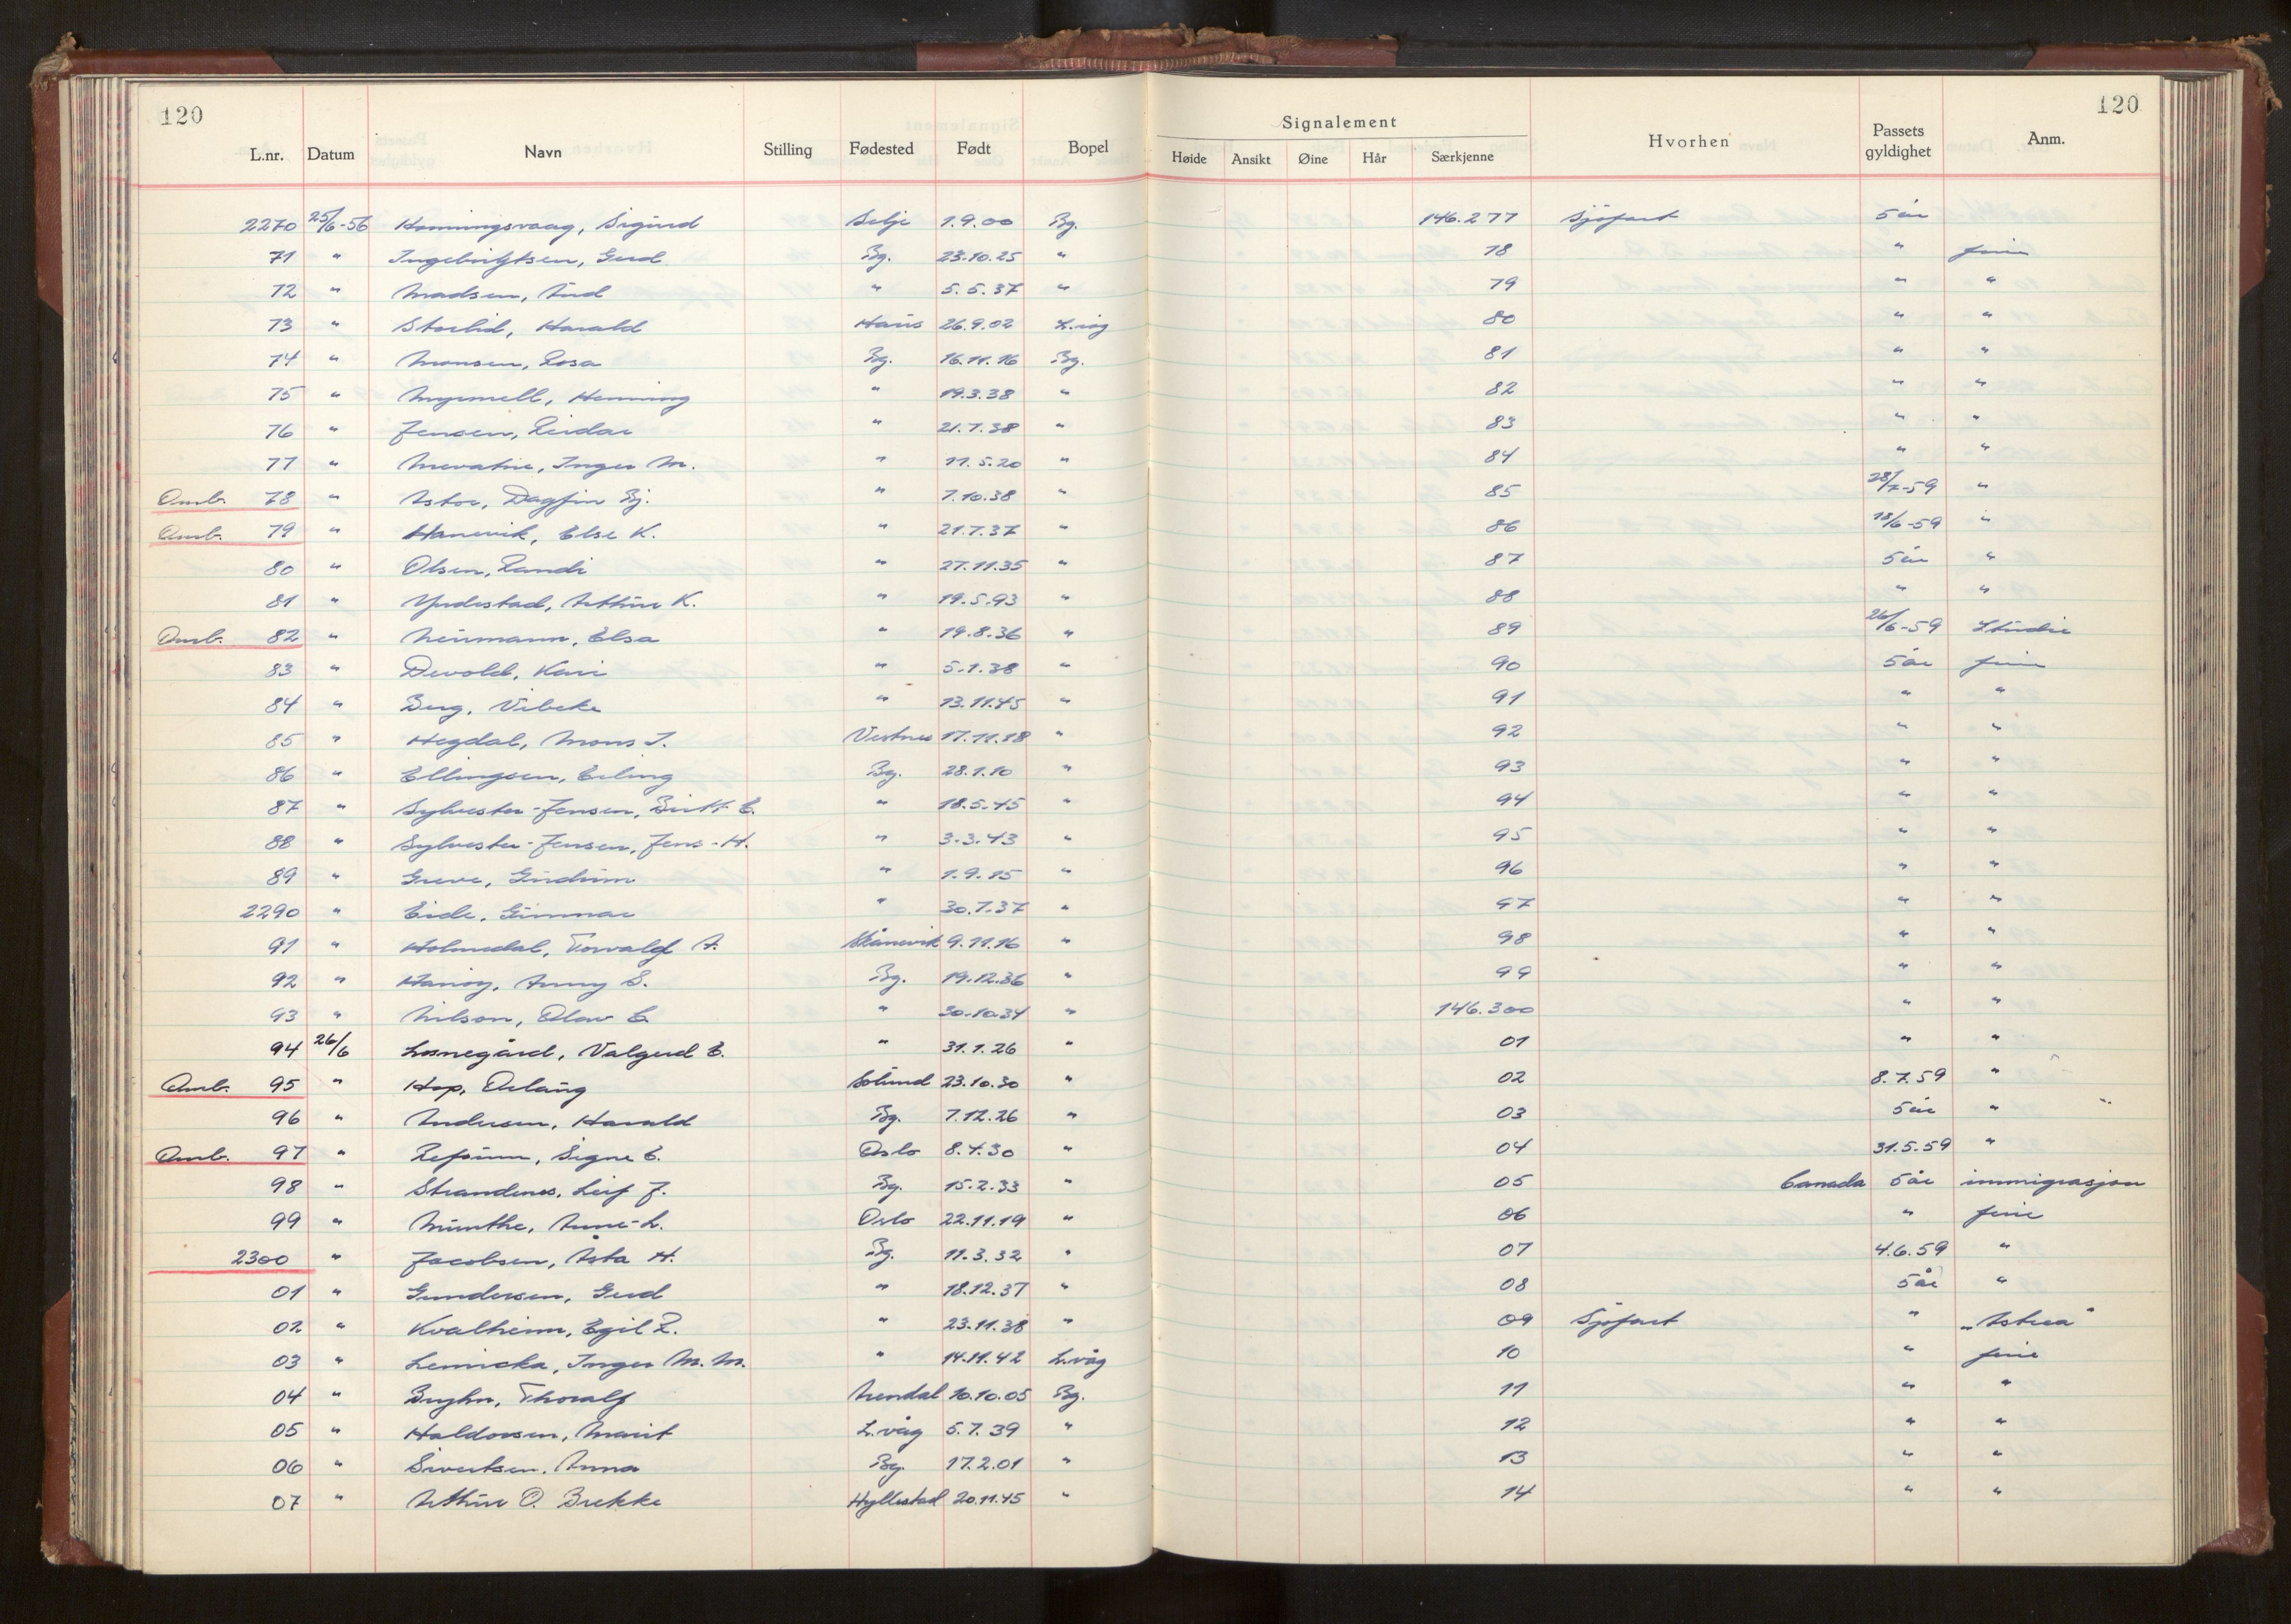 120 120
Signalement
L.nr. Datum Navn Stilling Fødested Født Bopel Høide Ansikt Øine Hår Særkjenne Hvorhen Passets gyldighet Anm.
2270 25/6-56 Henningsvaag, Sigurd Selje 1.9.00 Bg. 146.277 Sjøfart 5 år
71 " Ingebrigtsen, Gerd Bg. 23.10.25 " 78 " ferie
72 " Madsen, Aud " 5.5.37 " 79 " "
73 " Storlid, Harald Haus 26.9.02 80 " "
74 " Monsen, Rosa Bg. 16.11.16 Bg. 81 " "
75 " Henning " 19.3.38 " 82 " "
76 " Jensen, Reidar " 21.7.38 " 83 " "
77 " Inger M. " 11.5.20 " 84 " "
Omb. 78 " Dagfin Bj. " 7.10.38 " 85 28/7-59 "
Omb. 79 " Hanevik, Else K. " 21.7.37 " 86 18/6-59 "
80 " Olsen, Randi " 27.11.35 " 87 5 år "
81 " Yndestad, Arthur K. " 19.5.93 " 88 " "
Omb. 82 " Neumann, Elsa " 19.8.36 " 89 26/6-59 Studie
83 " Devold, Kari " 5.1.38 " 90 5 år ferie
84 " Berg, Vibeke " 13.11.45 " 91 " "
85 " Hegdal, Mons J. Vestnes 17.11.18 " 92 " "
86 " Ellingsen, Erling Bg. 28.1.10 " 93 " "
87 " Sylvester-Jensen, Britt E. " 18.5.45 " 94 " "
88 " Sylvester-Jensen, Jens-H. " 3.3.43 " 95 " "
89 " Greve, Gudrun " 1.9.15 " 96 " "
2290 " Eide, Gunnar " 30.7.37 " 97 " "
91 " Holmedal, Torvald A. Skånevik 9.11.16 " 98 " "
92 " Anny S. Bg. 19.12.36 " 99 " "
93 " Nilson, Olav E. " 30.10.34 " 146.300 " "
94 26/6 Losnegård, Valgerd E. " 31.1.26 " 01 " "
Omb. 95 " Hop, Aslaug Solund 23.10.30 " 02 8.7.59 "
96 " Andersen, Harald Bg. 7.12.26 " 03 5 år "
Omb. 97 " Refsum, Signe E. Oslo 8.4.30 " 04 31.5.59 "
98 " Strandenes, Leif J. Bg. 15.2.33 " 05 Canada 5 år immigrasjon
99 " Munthe, Anne-L. Oslo 22.11.19 " 06 " ferie
2300 " Jacobsen, Asta H. Bg. 11.3.32 " 07 4.6.59 "
01 " Gundersen, Gerd " 18.12.37 " 08 5 år "
02 " Kvalheim, Egil R. " 23.11.38 " 09 Sjøfart " „Astrea"
03 " Inger M. M. " 14.11.42 L.våg 10 " ferie
04 " Bryhn, Thoralf Arendal 10.10.05 Bg. 11 " "
05 " Haldorsen, Marit L.våg 5.7.39 " 12 " "
06 " Sivertsen, Anna Bg. 17.2.01 " 13 " "
07 " Arthur O. Brekke Hyllestad 20.11.45 " 14 " "